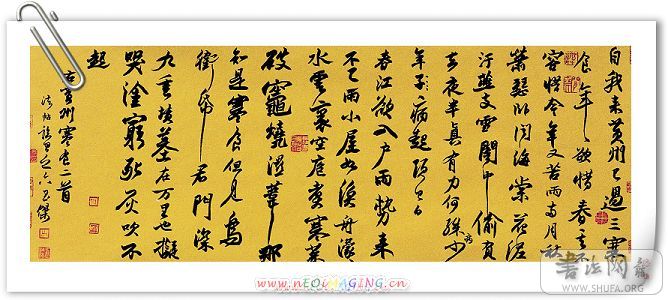 自我来黄州已過三寒
食年年欲惜春春去不
容惜今年又苦雨兩月秋
蕭瑟卧闻海棠花泥
汙燕支雪闇中偷負
去夜半真有力何殊少
年子病起頭已白
春江欲入户雨勢来
不已雨小屋如漁舟濛濛
水雲裏空庖煮寒菜
破竈燒湿葦那
知是寒食但見烏
銜帋君門深
九重墳墓在万里也擬
哭塗窮死灰吹不
起
右黄州寒食二首
www.nEOiMAGING.cn
書法网
WWW.SHUFA.ORG